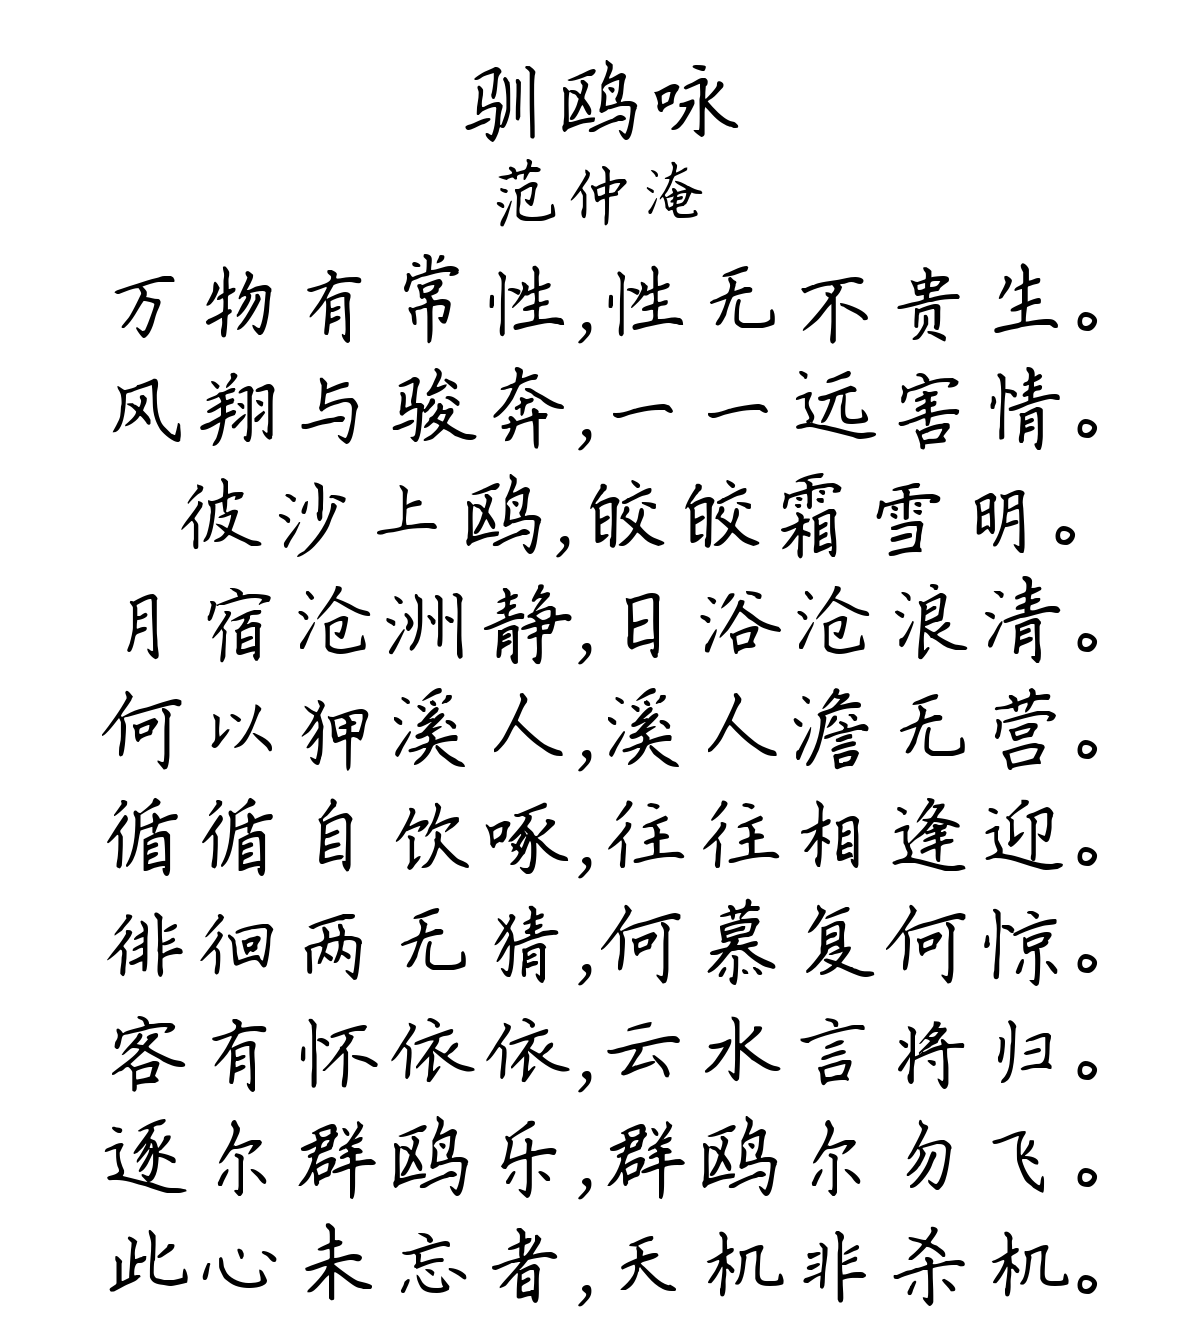 驯鸥咏
范仲淹
万物有常性,性无不贵生。
风翔与骏奔,一一远害情。
彼沙上鸥,皎皎霜雪明。
月宿沧洲静,日浴沧浪清。
何以狎溪人,溪人澹无营。
循循自饮啄,往往相逢迎。
徘徊两无猜,何慕复何惊。
客有怀依依,云水言将归。
逐尔群鸥乐,群鸥尔勿飞。
此心未忘者,天机非杀机。